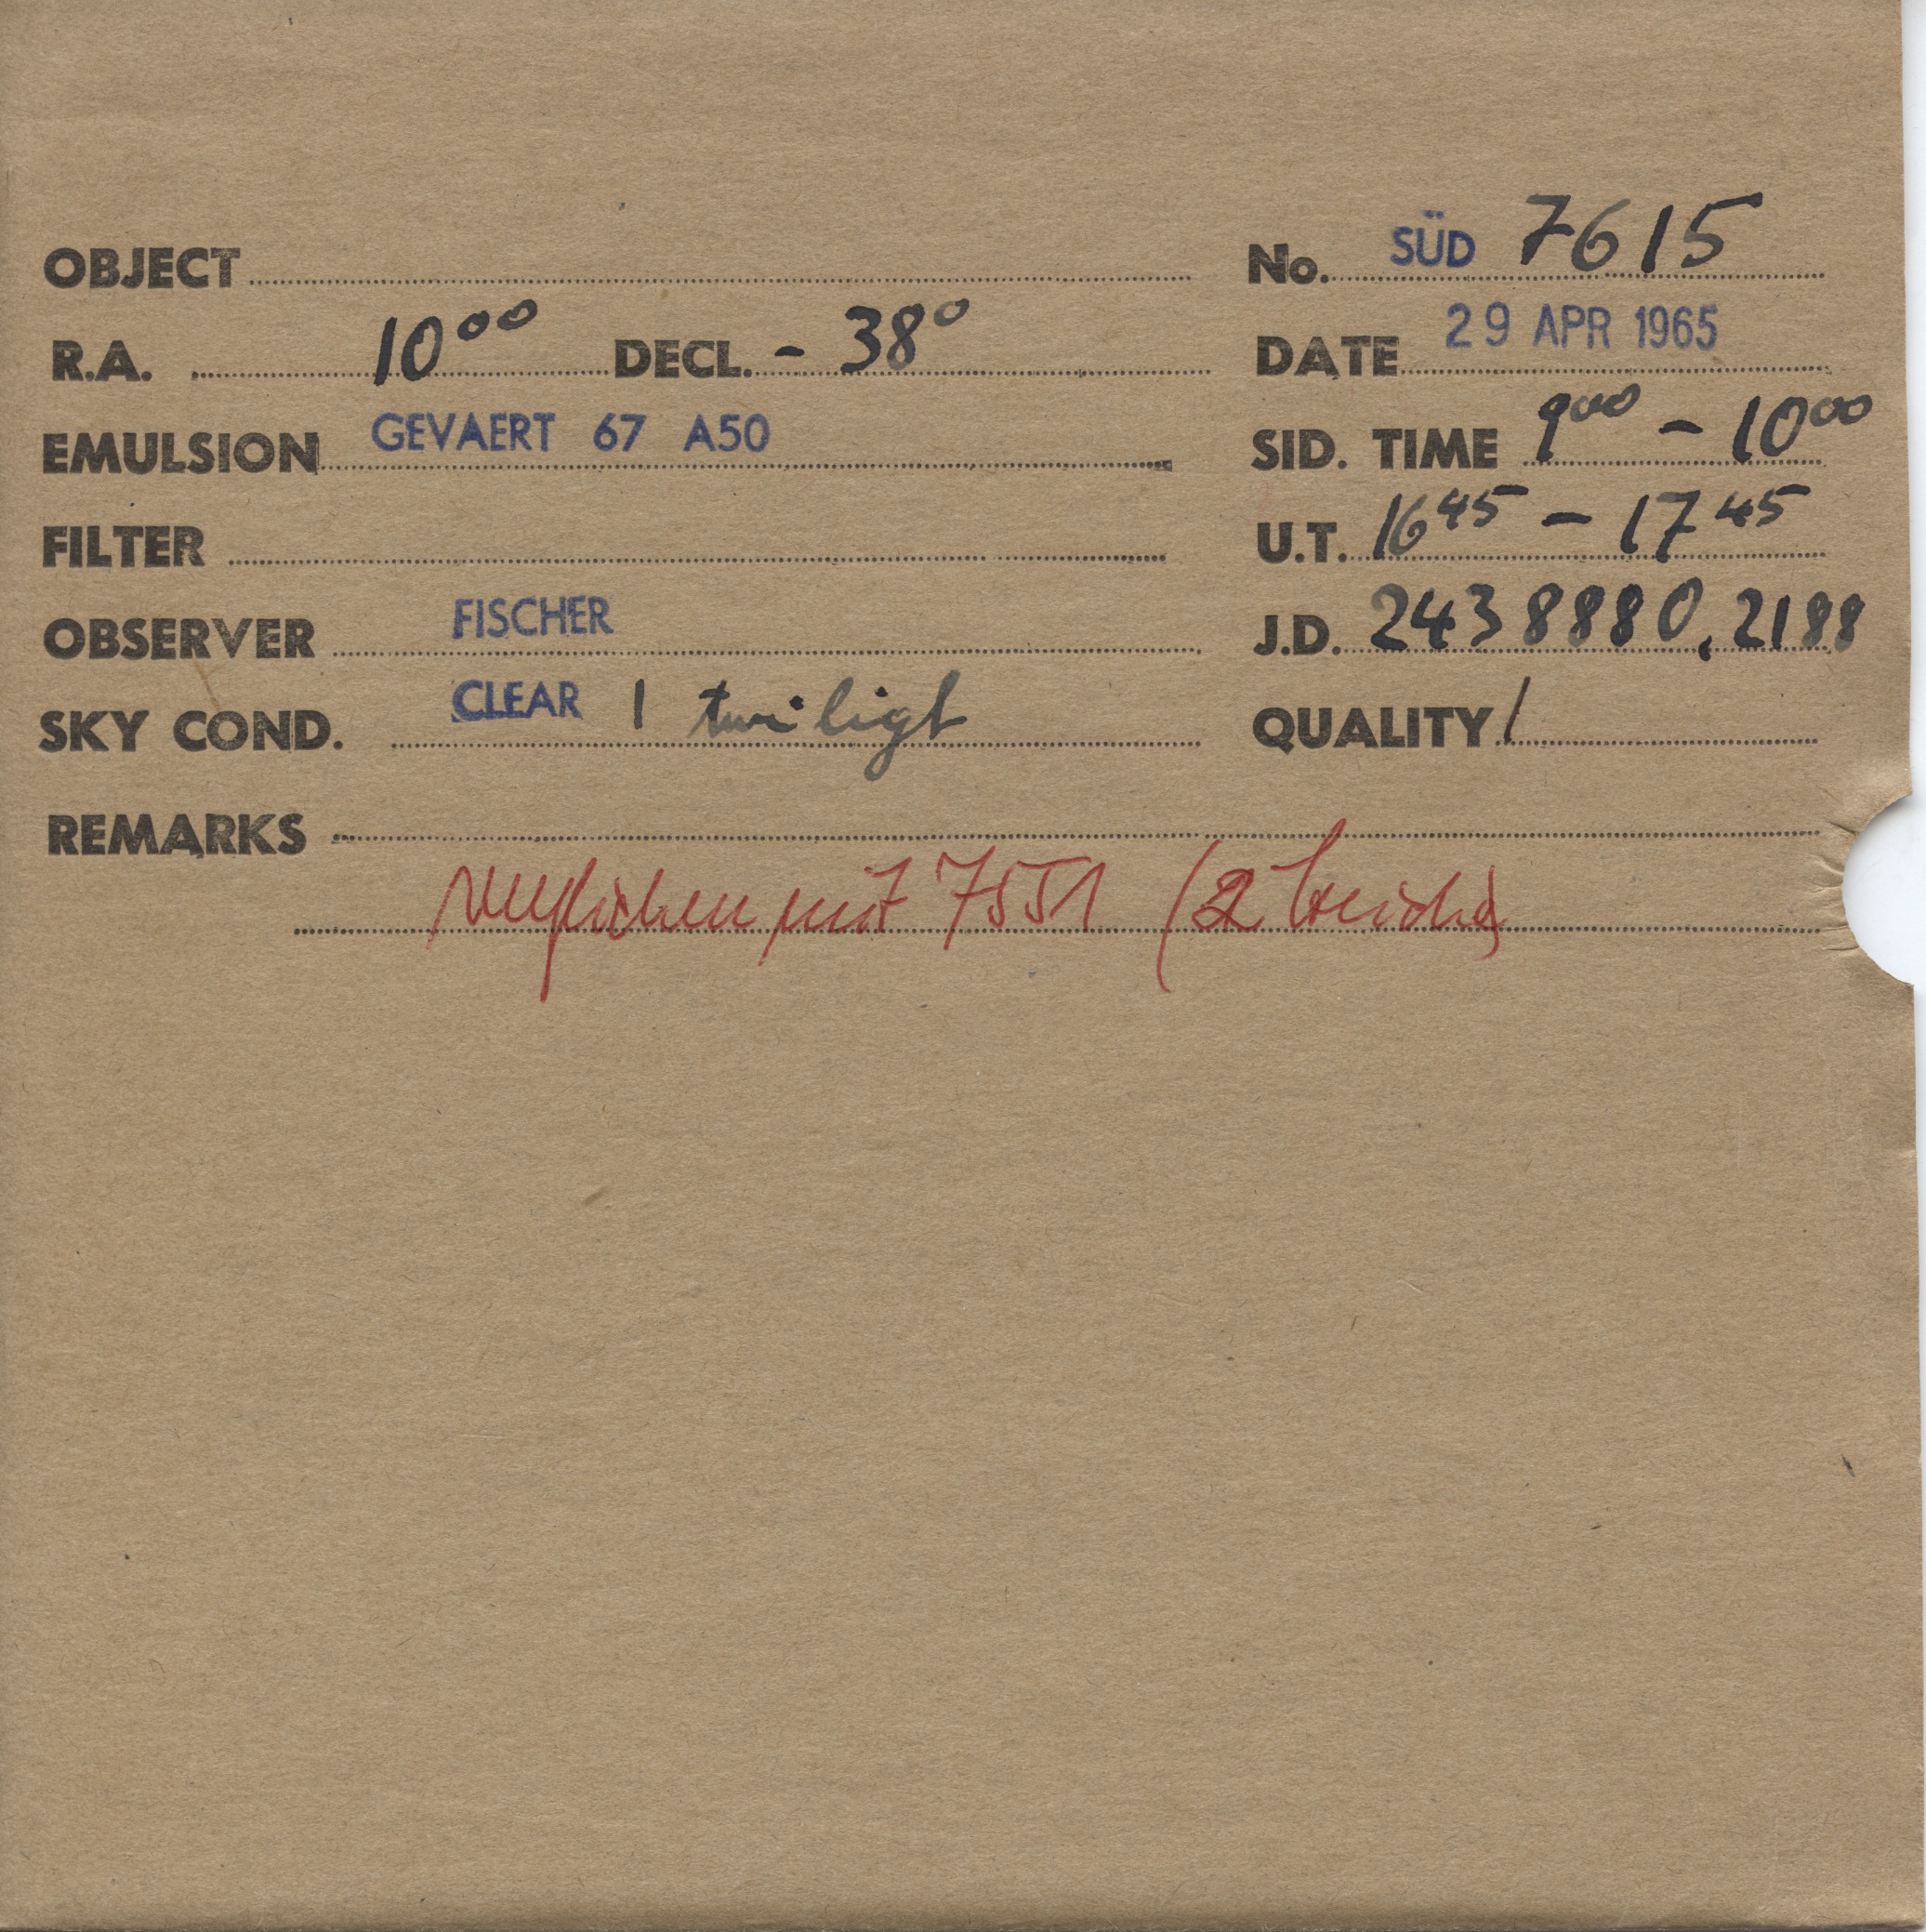 OBJECT No. SÜD 7615
R.A. 10⁰⁰ DECL. - 38° DATE 29 APR 1965
EMULSION GEVAERT 67 A50 SID. TIME 9⁰⁰ - 10⁰⁰
FILTER U.T. 16⁴⁵ - 17⁴⁵
OBSERVER FISCHER J.D. 2438880,2188
SKY COND. CLEAR 1 twiligt QUALITY 1
REMARKS
verglichen mit 7551 (2